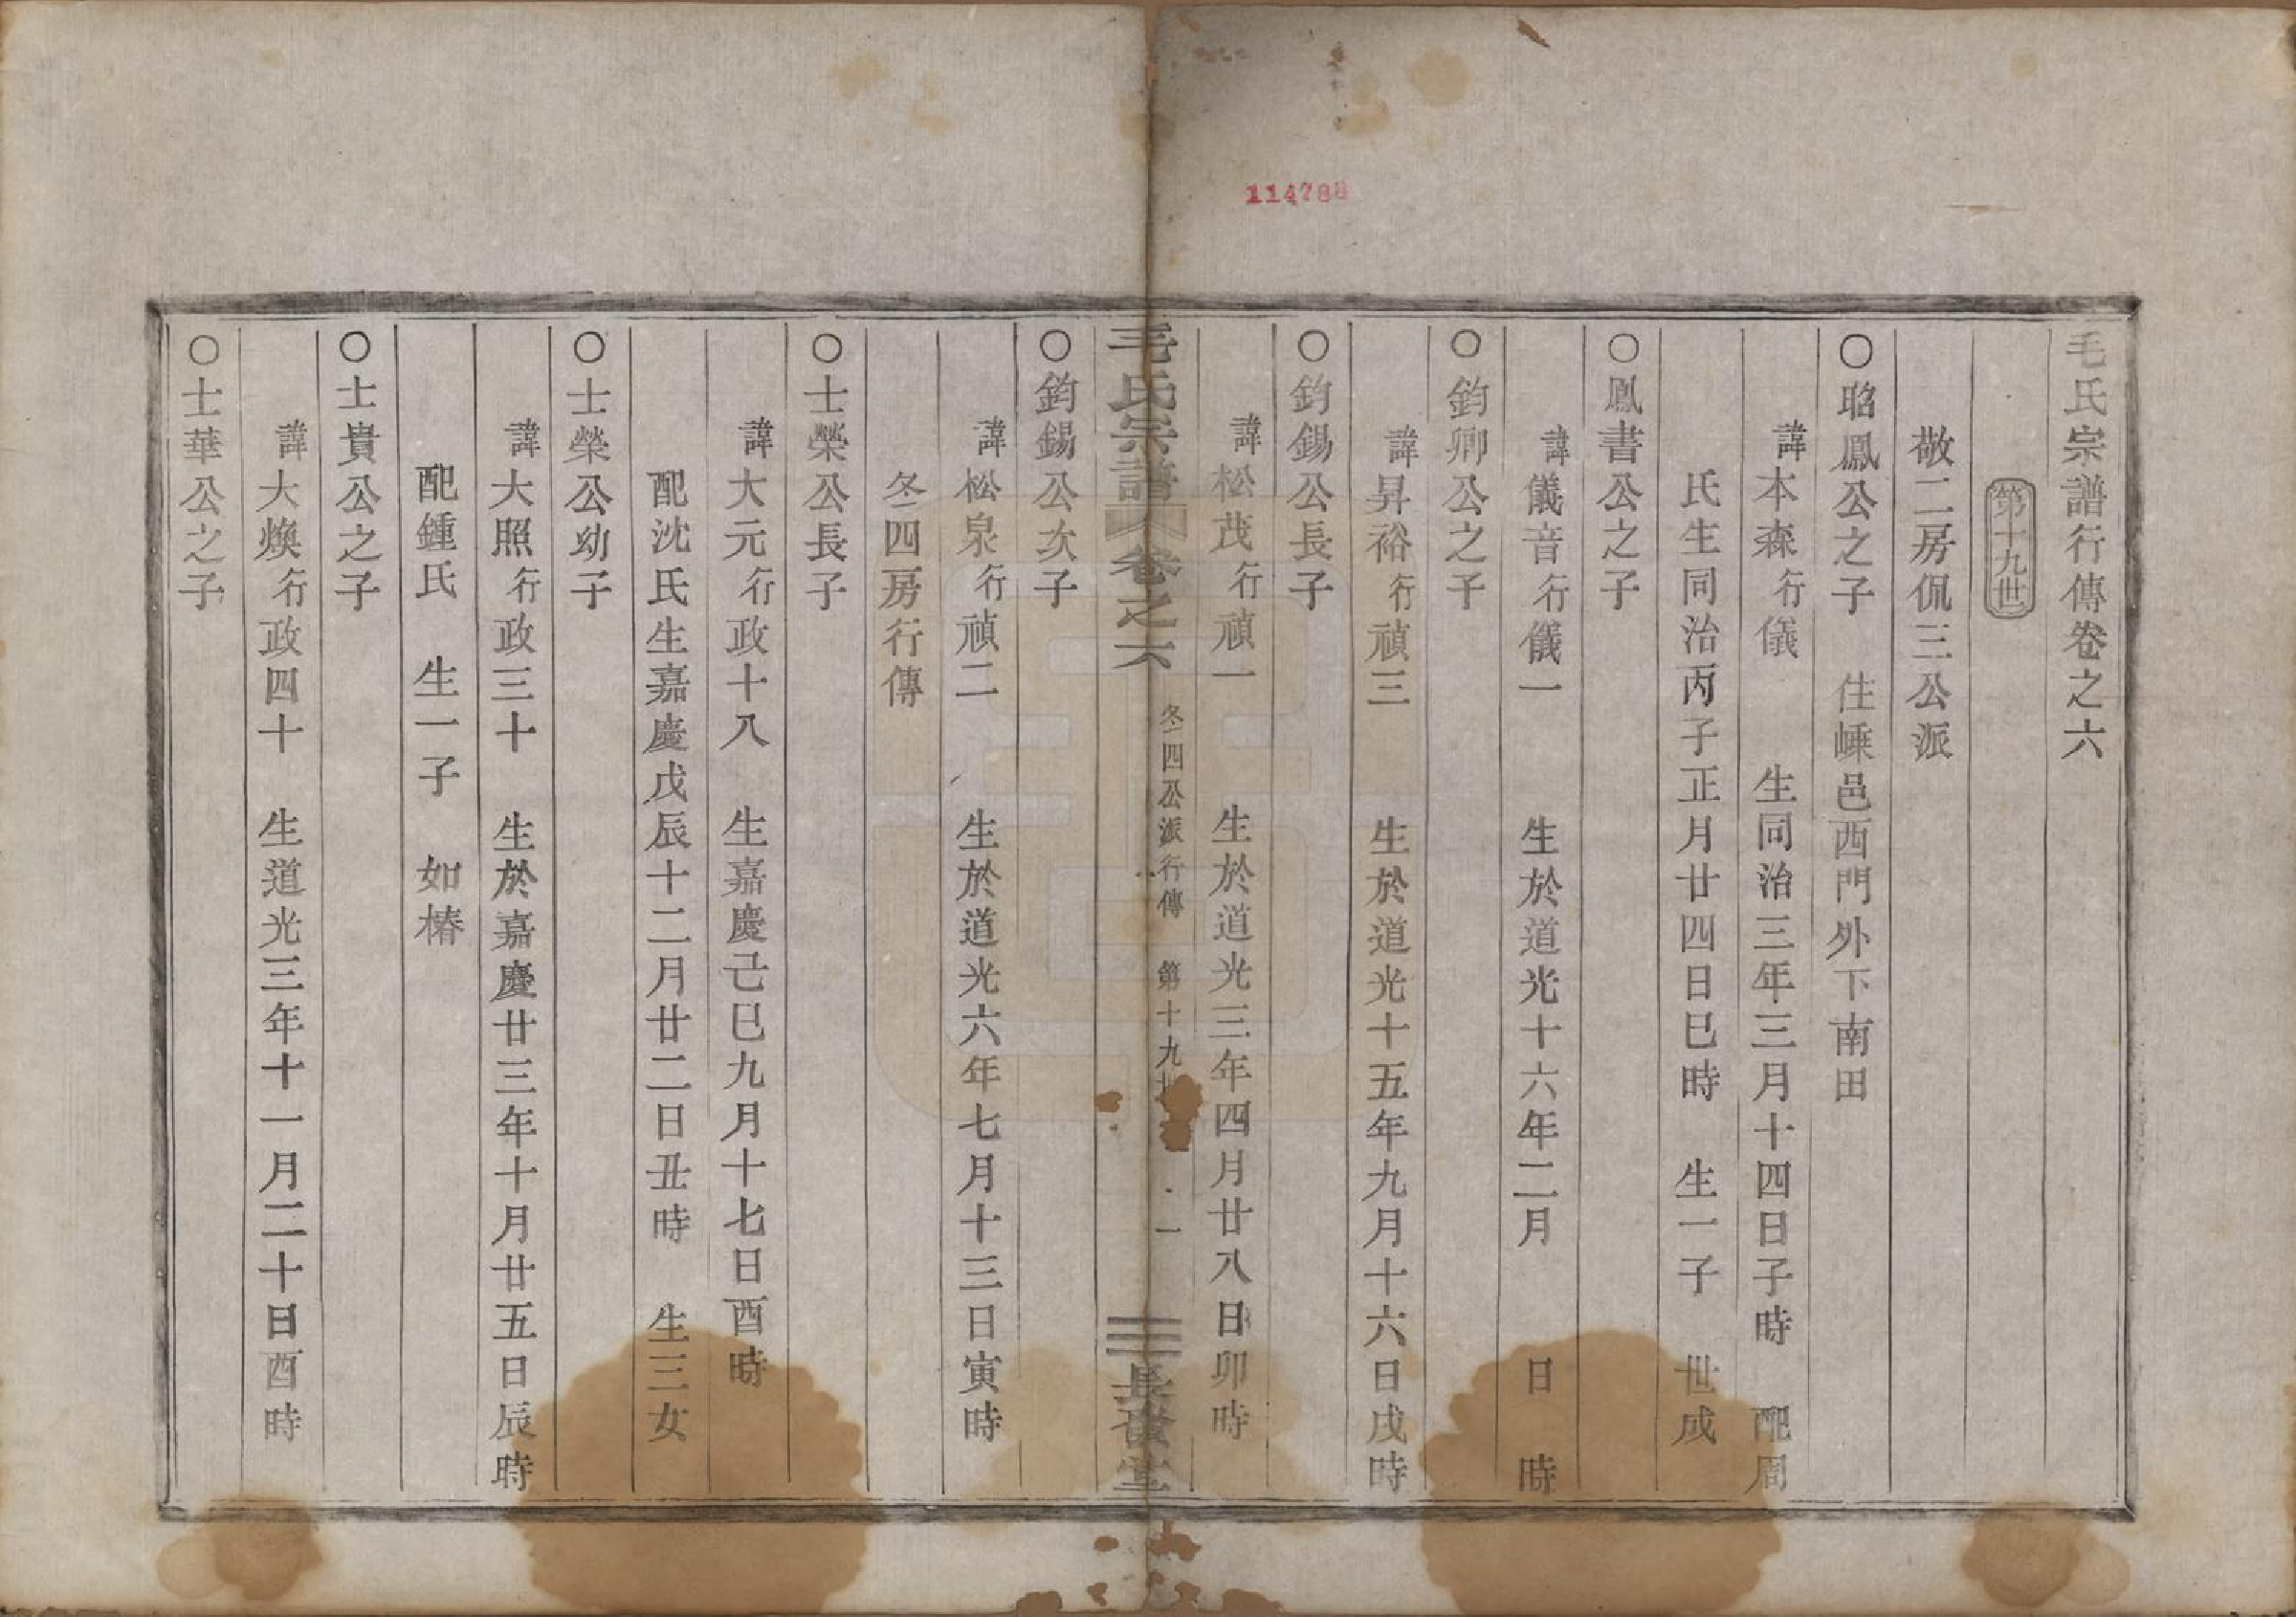 114788
毛氏宗譜行傳卷之六
第十九世
敬二房佩三公派
〇昭鳳公之子 住嵊邑西門外下南田
諱本森行儀 生同治三年三月十四日子時 配周
氏生同治丙子正月廿四日巳時 生一子 世成
〇鳳書公之子
諱儀音行儀一 生於道光十六年二月 日 時
〇鈞卿公之子
諱昇裕行禎三 生於道光十五年九月十六日戌時
〇鈞錫公長子
諱松茂行禎一 生於道光三年四月廿八日卯時
毛氏宗譜 卷之六 冬四公派行傳 第十九世 一 長發堂
〇鈞錫公次子
諱松泉行禎二 生於道光六年七月十三日寅時
冬四房行傳
〇士榮公長子
諱大元行政十八 生嘉慶己巳九月十七日酉時
配沈氏生嘉慶戊辰十二月廿二日丑時 生三女
〇士榮公幼子
諱大照行政三十 生於嘉慶廿三年十月廿五日辰時
配鍾氏 生一子 如椿
〇士貴公之子
諱大煥行政四十 生道光三年十一月二十日酉時
〇士華公之子